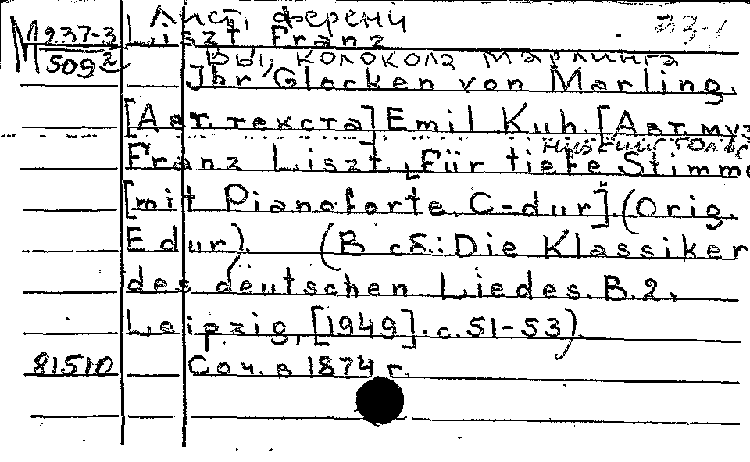 Лист, Ференц 33-1
М 937-3 Liszt Franz
509² Вы, колокола Марлинга
Jhr Glocken von Marling.
[Авт. текста] Emil Kuh. [Авт. муз
низкий голос
Franz Liszt. Für tiefe Stimme
[mit Pianoforte. C-dur]. (Orig.
E dur). (В сб.: Die Klassiker
des deutschen Liedes. B.2.
Leipzig, [1949]. с. 51-53)
81510 Соч. в 1874 г.